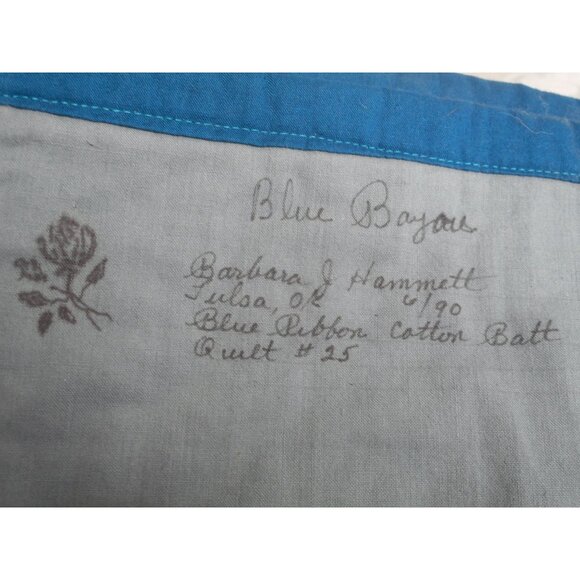 Blue Bayou
Barbara J Hammett
Tulsa, OK 6/90
Blue Ribbon Cotton Batt
Quilt # 25